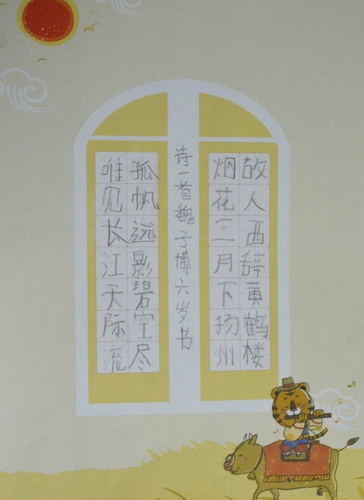 故人西辞黄鹤楼
烟花三月下扬州
诗一首魏子博六岁书
孤帆远影碧空尽
唯见长江天际流